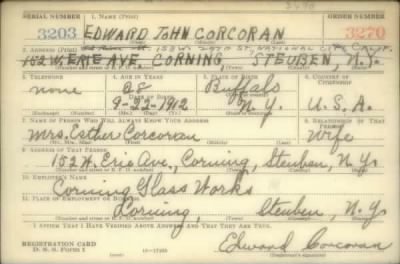 SERIAL NUMBER 1. NAME (Print) ORDER NUMBER
3203 EDWARD JOHN CORCORAN 3270
2. ADDRESS (Print)
NATIONAL CITY CALIF.
152 W. ERIE AVE. CORNING STEUBEN, N.Y.
3. TELEPHONE 4. AGE IN YEARS 5. PLACE OF BIRTH 6. COUNTRY OF CITIZENSHIP
none 28 Buffalo
DATE OF BIRTH
9-22-1912 N.Y. U.S.A.
7. NAME OF PERSON WHO WILL ALWAYS KNOW YOUR ADDRESS 8. RELATIONSHIP OF THAT PERSON
Mrs. Esther Corcoran Wife
9. ADDRESS OF THAT PERSON
152 W. Erie Ave., Corning, Steuben, N.Y.
10. EMPLOYER'S NAME
Corning Glass Works
11. PLACE OF EMPLOYMENT OR BUSINESS
Corning, Steuben, N.Y.
I AFFIRM THAT I HAVE VERIFIED ABOVE ANSWERS AND THAT THEY ARE TRUE.
REGISTRATION CARD
D. S. S. FORM 1
Edward Corcoran